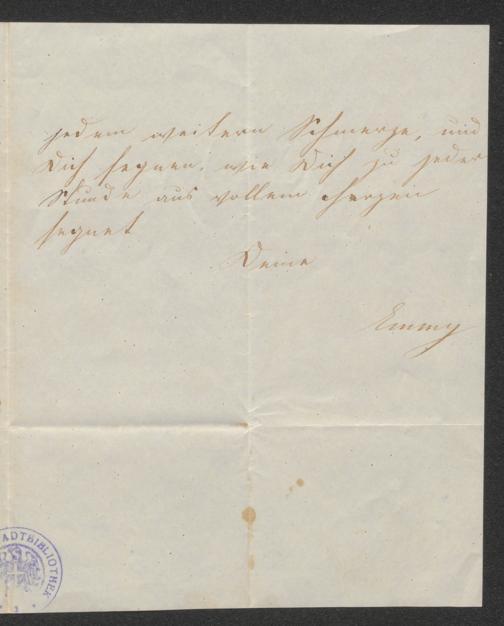 jedem weitern Schmerze, und
Dich segnen, wie Dich zu jeder
Stunde aus vollem Herzen
segnet
Deine
Emmy
ADTBIBLIOTHEK